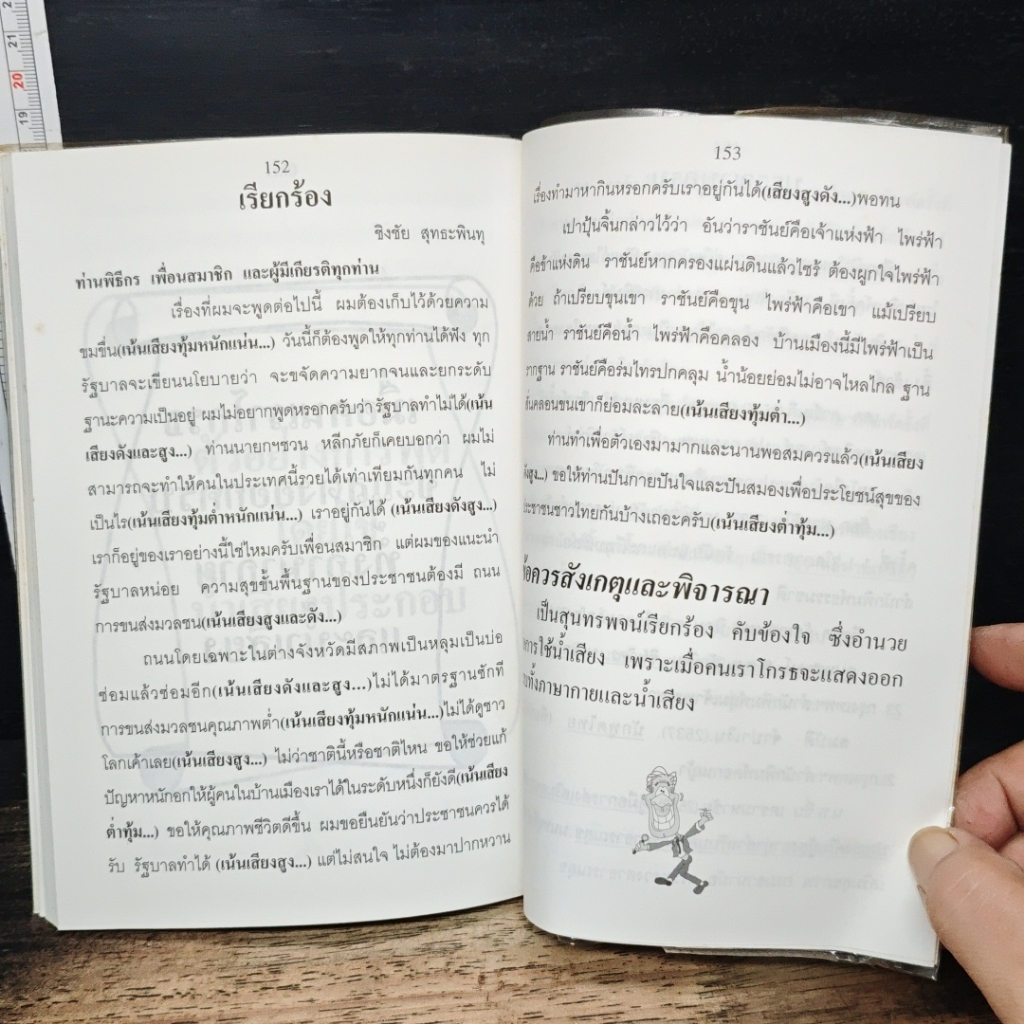 21
20
19
152
เรียกร้อง
ชิงชัย สุทธะพินทุ
ท่านพิธีกร เพื่อนสมาชิก และผู้มีเกียรติทุกท่าน
เรื่องที่ผมจะพูดต่อไปนี้ ผมต้องเก็บไว้ด้วยความ
ขมขื่น(เน้นเสียงทุ้มหนักแน่น...) วันนี้ก็ต้องพูดให้ทุกท่านได้ฟัง ทุก
รัฐบาลจะเขียนนโยบายว่า จะขจัดความยากจนและยกระดับ
ฐานะความเป็นอยู่ ผมไม่อยากพูดหรอกครับว่า รัฐบาลทำไม่ได้(เน้น
เสียงดังและสูง...) ท่านนายกฯชวน หลีกภัยก็เคยบอกว่า ผมไม่
สามารถจะทำให้คนในประเทศนี้รวยได้เท่าเทียมกันทุกคน ไม่
เป็นไร(เน้นเสียงทุ้มต่ำหนักแน่น...) เราอยู่กันได้ (เน้นเสียงดังสูง...)
เราก็อยู่ของเราอย่างนี้ใช่ไหมครับเพื่อนสมาชิก แต่ผมของแนะนำ
รัฐบาลหน่อย ความสุขขั้นพื้นฐานของประชาชนต้องมี ถนน
การขนส่งมวลชน(เน้นเสียงสูงและดัง...)
ถนนโดยเฉพาะในต่างจังหวัดมีสภาพเป็นหลุมเป็นบ่อ
ซ่อมแล้วซ่อมอีก(เน้นเสียงดังและสูง...)ไม่ได้มาตรฐานซักที
การขนส่งมวลชนคุณภาพต่ำ(เน้นเสียงทุ้มหนักแน่น...)ไม่ได้ดูชาว
โลกเค้าเลย(เน้นเสียงสูง...) ไม่ว่าชาตินี้หรือชาติไหน ขอให้ช่วยแก้
ปัญหาหนักอกให้ผู้คนในบ้านเมืองเราได้ในระดับหนึ่งก็ยังดี(เน้นเสียง
ต่ำทุ้ม...) ขอให้คุณภาพชีวิตดีขึ้น ผมขอยืนยันว่าประชาชนควรได้
รับ รัฐบาลทำได้ (เน้นเสียงสูง...) แต่ไม่สนใจ ไม่ต้องมาปากหวาน
153
เรื่องทำมาหากินหรอกครับเราอยู่กันได้(เสียงสูงดัง...)พอทน
เปาปุ้นจิ้นกล่าวไว้ว่า อันว่าราชันย์คือเจ้าแห่งฟ้า ไพร่ฟ้า
คือข้าแห่งดิน ราชันย์หากครองแผ่นดินแล้วไซร้ ต้องผูกใจไพร่ฟ้า
ด้วย ถ้าเปรียบขุนเขา ราชันย์คือขุน ไพร่ฟ้าคือเขา แม้เปรียบ
สายน้ำ ราชันย์คือน้ำ ไพร่ฟ้าคือคลอง บ้านเมืองนี้มีไพร่ฟ้าเป็น
รากฐาน ราชันย์คือร่มไทรปกคลุม น้ำน้อยย่อมไม่อาจไหลไกล ฐาน
สั่นคลอนขุนเขาก็ย่อมละลาย(เน้นเสียงทุ้มต่ำ...)
ท่านทำเพื่อตัวเองมามากและนานพอสมควรแล้ว(เน้นเสียง
ดังสูง...) ขอให้ท่านปันกายปันใจและปันสมองเพื่อประโยชน์สุขของ
ประชาชนชาวไทยกันบ้างเถอะครับ(เน้นเสียงต่ำทุ้ม...)
ข้อควรสังเกตุและพิจารณา
เป็นสุนทรพจน์เรียกร้อง คับข้องใจ ซึ่งอำนวย
การใช้น้ำเสียง เพราะเมื่อคนเราโกรธจะแสดงออก
ทั้งภาษากายและน้ำเสียง